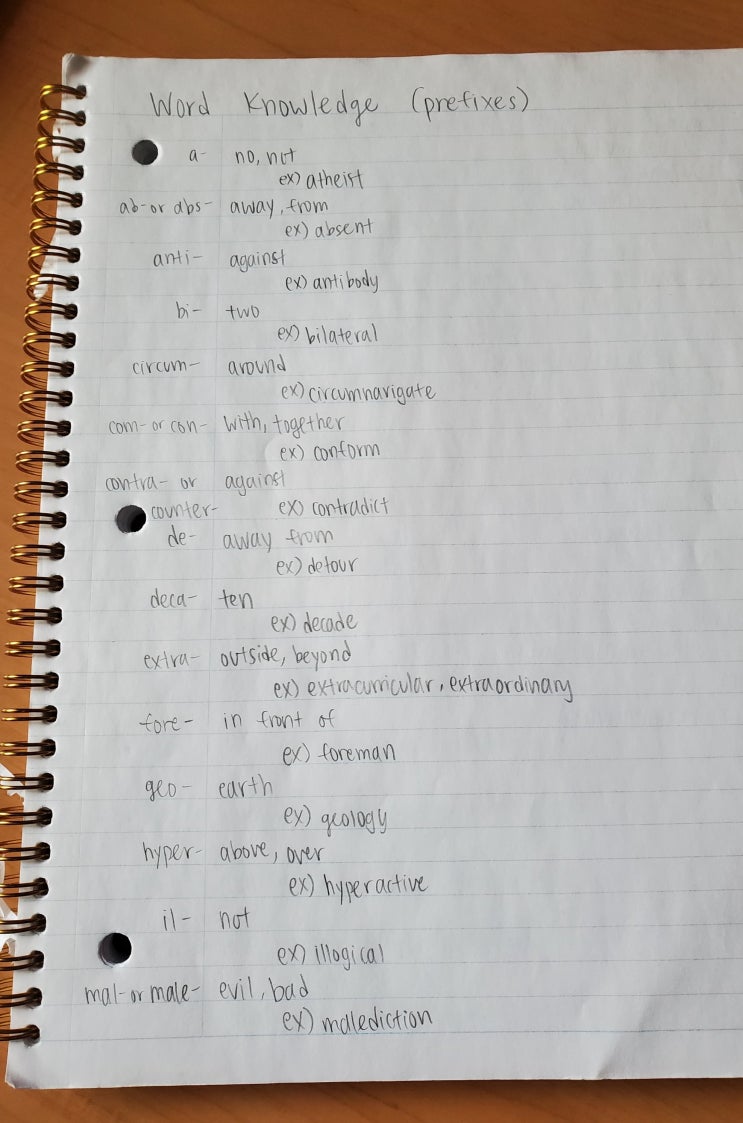 Word Knowledge (prefixes)
a- no, not
ex) atheist
ab- or abs- away, from
ex) absent
anti- against
ex) antibody
bi- two
ex) bilateral
circum- around
ex) circumnavigate
com- or con- with, together
ex) conform
contra- or against
counter- ex) contradict
de- away from
ex) detour
deca- ten
ex) decade
extra- outside, beyond
ex) extracurricular, extraordinary
fore- in front of
ex) foreman
geo- earth
ex) geology
hyper- above, over
ex) hyperactive
il- not
ex) illogical
mal- or male- evil, bad
ex) malediction